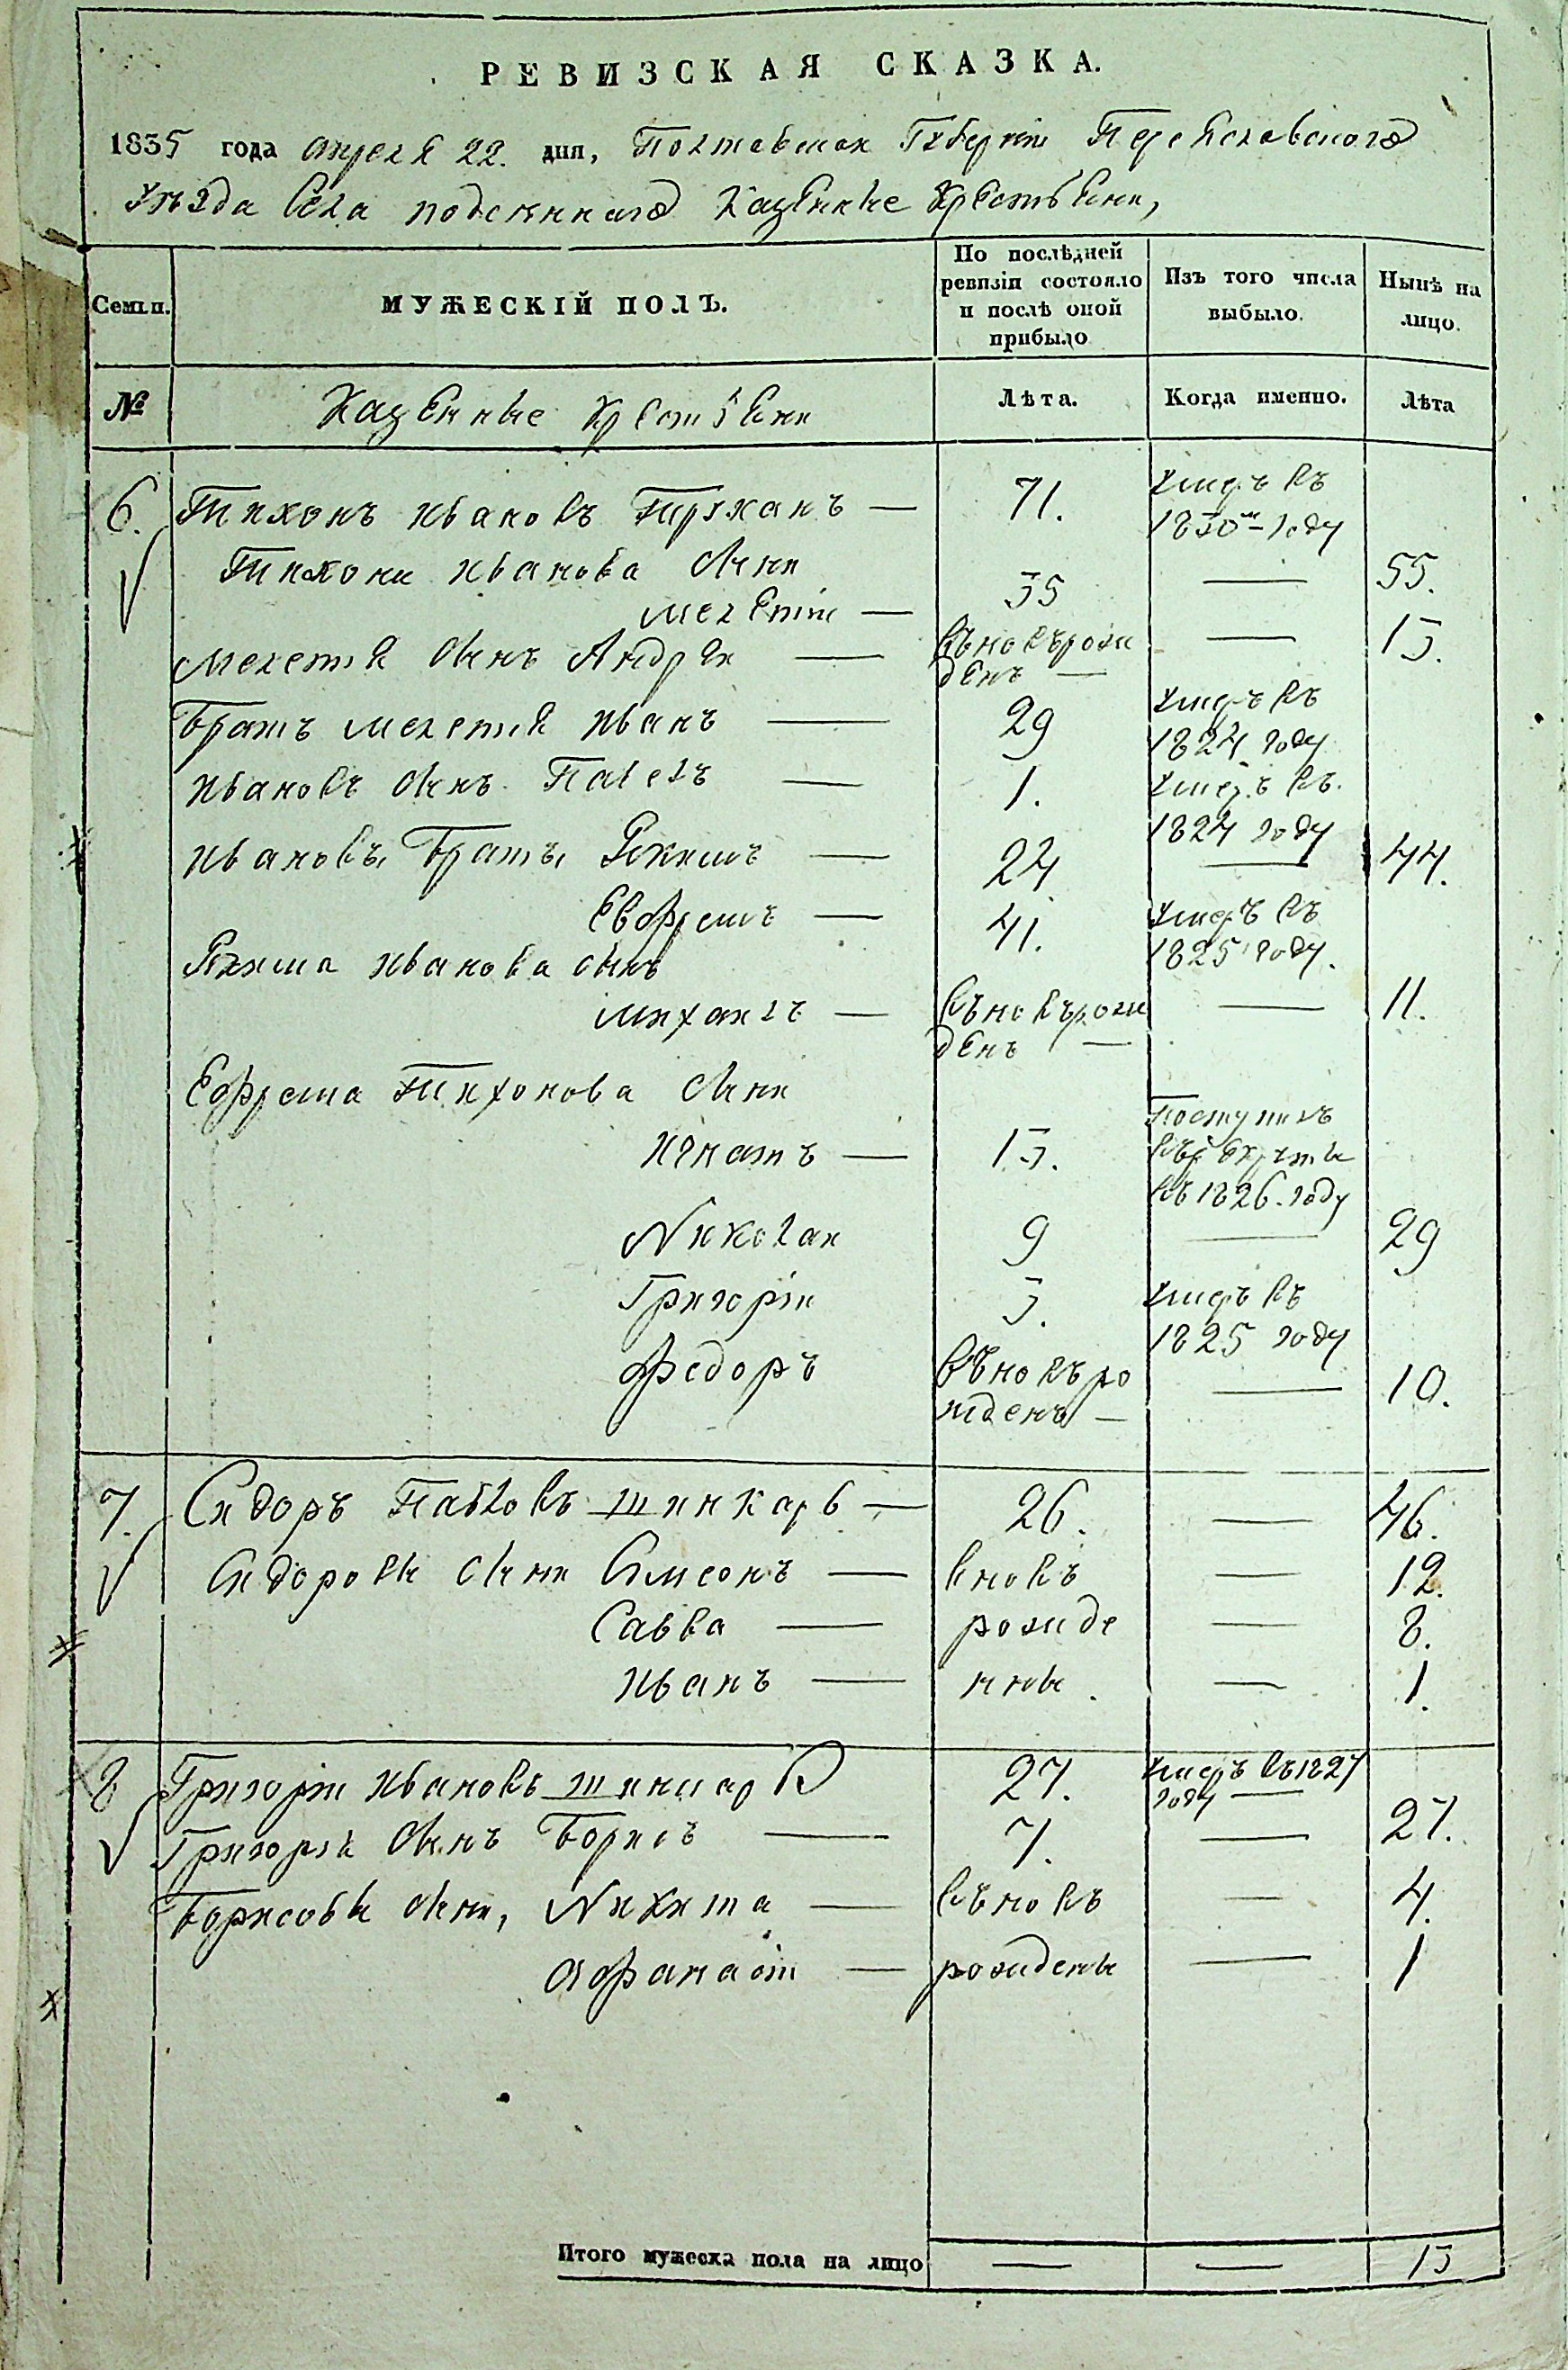 РЕВИЗСКАЯ СКАЗКА.
1835 года апреля 22. дня, Полтавской Губернии Переяславского
уѣзда Села подсеннаго казенные крестьяне,
Семьи. МУЖЕСКІЙ ПОЛЪ. По послѣдней ревизіи состояло и послѣ оной прибыло Изъ того числа выбыло. Нынѣ на лицо.
№ Казенные крестьяне Лѣта. Когда именно. Лѣта
6. Тихонъ Ивановъ Тружанъ — 71. умеръ въ 1830м году
Тихони Иванова сыни
Мелетій — 35 — 55.
Мелетія сынъ Андрей — въновърожденъ — — 13.
братъ Мелетія Иванъ — 29 умеръ въ 1824 году
Ивановъ сынъ Павелъ — 1. умеръ въ 1824 году
Ивановы браты Якимъ — 24 — 44.
Евфремъ — 41. умеръ въ 1825 году.
Якима Иванова сынъ
Михаилъ — въновърожденъ — — 11.
Ефрема Тихонова сыни
Игнатъ — 13. Поступилъ въ рекруты въ 1826. году
Николай 9 — 29
Григорій 3. умеръ въ 1825 году
Федоръ въновърожденъ — — 10.
7. Сидоръ Павловъ шинкарь — 26. — 46.
Сидоровы сыни Симеонъ — вновъ — 12.
Савва — рожде — 8.
Иванъ — нны. — 1.
8 Григорій Ивановъ шинкарь 27. умеръ въ 1827 году —
Григорія сынъ Борисъ — 7. — 27.
Борисовы сыни, Никита — въновъ — 4.
Афанасій — рождены — 1
Итого мужеска пола на лицо — — 13